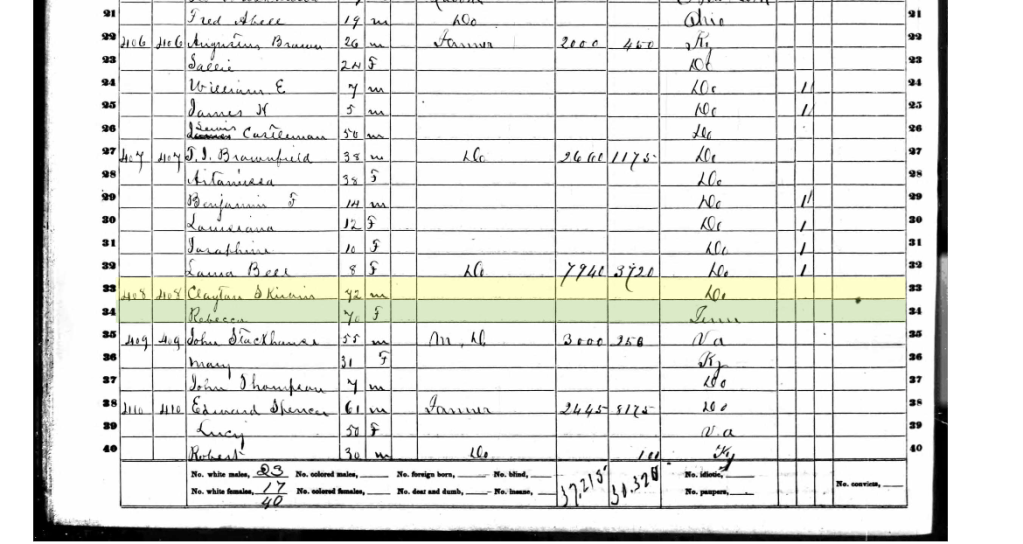 21 Fred Abell 19 m Do Ohio 21
22 406 406 Augustus Brown 26 m Farmer 2000 450 Ky 22
23 Sallie 24 F Do 23
24 William E 7 m Do 1 24
25 James H 5 m Do 1 25
26 Lewis Castleman 50 m Do 26
27 407 407 T. I. Brownfield 38 m Do 1175 Do 27
28 38 F Do 28
29 Benjamin F 14 m Do 1 29
30 Louisiana 12 F Do 1 30
31 Josaphine 10 F Do 1 31
32 Laura Bell 8 F Do 7940 3720 Do 1 32
33 408 408 Clayton Skirvin m Do 33
34 Rebecca 70 F Tenn 34
35 409 409 John Stackhouse 55 m M, D 3000 250 Va 35
36 Mary 31 F Ky 36
37 John Thompson 7 m Do 37
38 410 410 Edward Spencer 61 m Farmer 2445 8175 Do 38
39 Lucy 50 F Va 39
40 Robert 30 m Do 100 Ky 40
No. white males, 23 No. colored males, No. foreign born, No. blind, 37,215 30,320 No. idiotic,
No. white females, 17 No. colored females, No. deaf and dumb, No. insane, No. paupers, No. convicts,
40